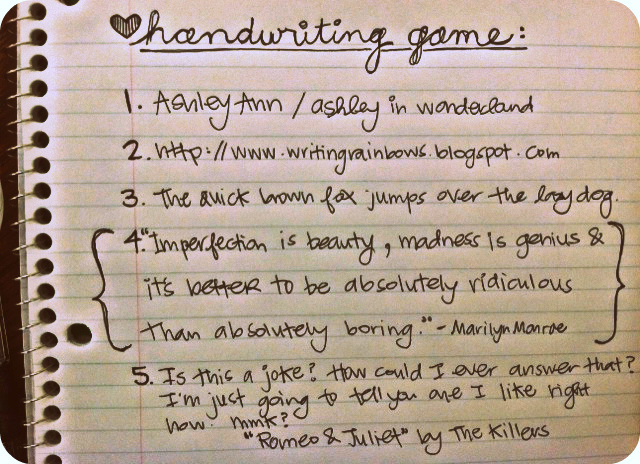 handwriting game:
1. Ashley Ann / ashley in wonderland
2. http://www.writingrainbows.blogspot.com
3. The quick brown fox jumps over the lazy dog.
4. "Imperfection is beauty, madness is genius &
it's better to be absolutely ridiculous
than absolutely boring." - Marilyn Monroe
5. Is this a joke? How could I ever answer that?
I'm just going to tell you one I like right
now. mmk?
"Romeo & Juliet" by The Killers